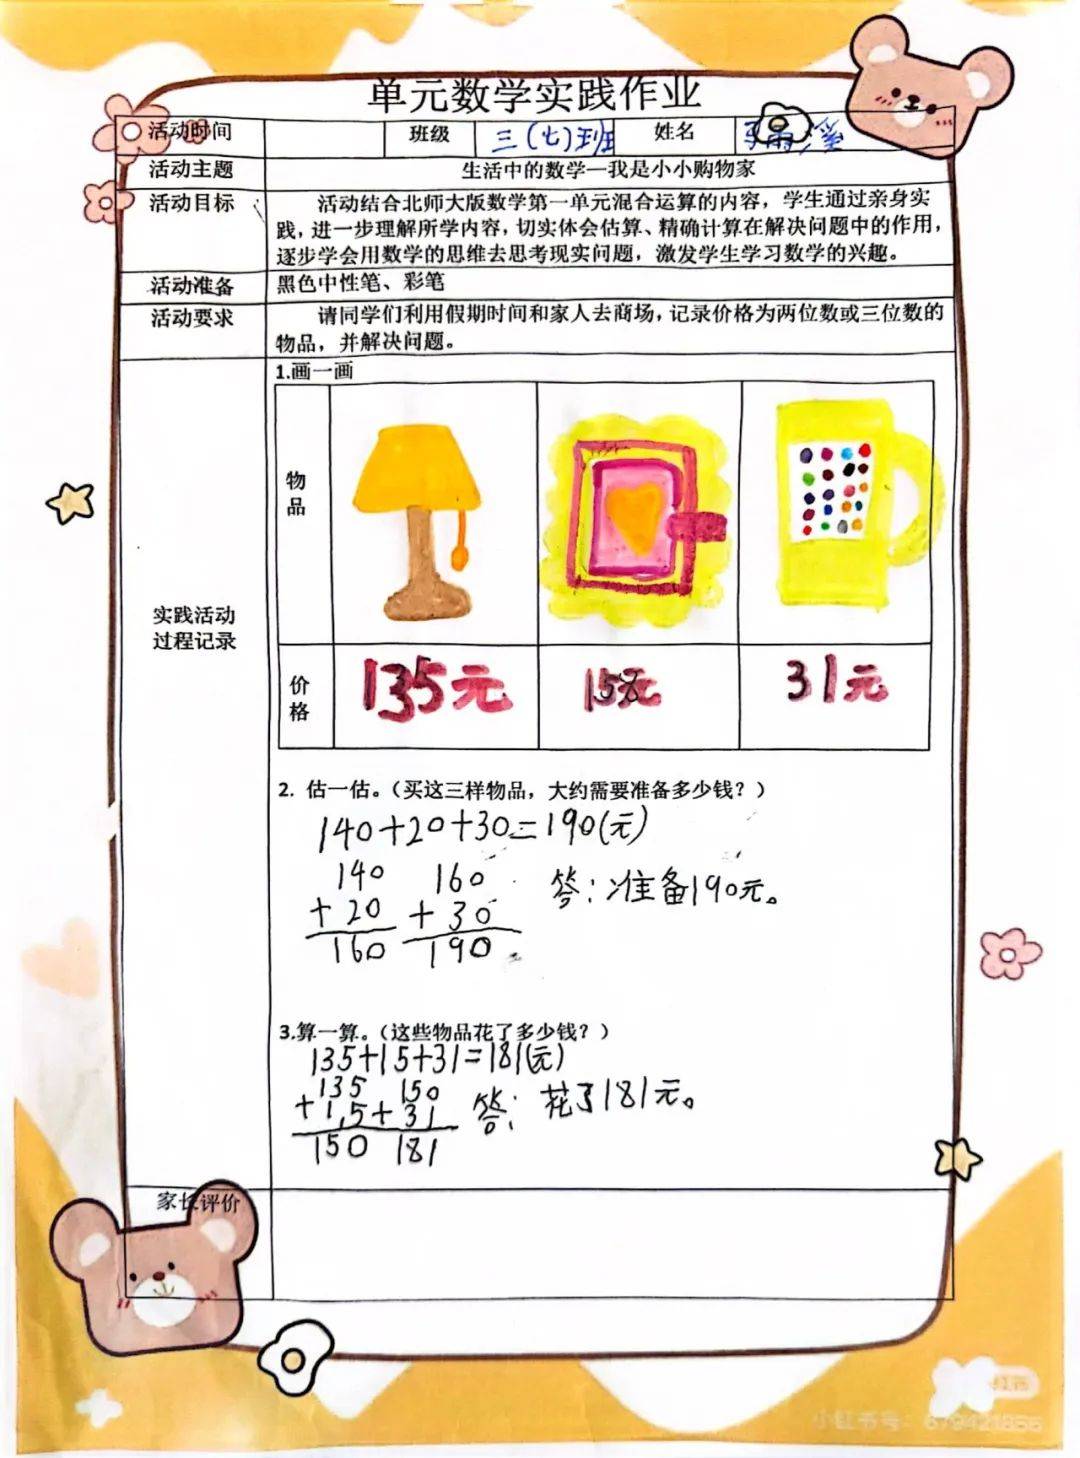 单元数学实践作业
活动时间 班级 三(七)班 姓名
活动主题 生活中的数学—我是小小购物家
活动目标 活动结合北师大版数学第一单元混合运算的内容，学生通过亲身实
践，进一步理解所学内容，切实体会估算、精确计算在解决问题中的作用，
逐步学会用数学的思维去思考现实问题，激发学生学习数学的兴趣。
活动准备 黑色中性笔、彩笔
活动要求 请同学们利用假期时间和家人去商场，记录价格为两位数或三位数的
物品，并解决问题。
实践活动
过程记录
1.画一画
物
品
价
格
135元 15元 31元
2. 估一估。（买这三样物品，大约需要准备多少钱？）
140+20+30=190(元)
140 160
+ 20 + 30
160 190
答：准备190元。
3.算一算。（这些物品花了多少钱？）
135+15+31=181(元)
135 150
+ 15 + 31
150 181
答：花了181元。
家长评价
小红书号：679421856